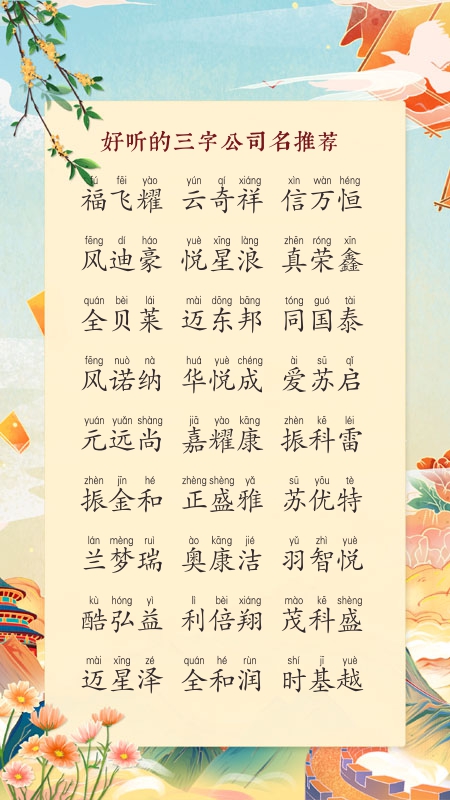 好听的三字公司名推荐
fú fēi yào yún qí xiáng xìn wàn héng
福飞耀 云奇祥 信万恒
fēng dí háo yuè xīng làng zhēn róng xīn
风迪豪 悦星浪 真荣鑫
quán bèi lái mài dōng bāng tóng guó tài
全贝莱 迈东邦 同国泰
fēng nuò nà huá yuè chéng ài sū qǐ
风诺纳 华悦成 爱苏启
yuán yuǎn shàng jiā yào kāng zhèn kē léi
元远尚 嘉耀康 振科雷
zhèn jīn hé zhèng shèng yǎ sū yōu tè
振金和 正盛雅 苏优特
lán mèng ruì ào kāng jié yǔ zhì yuè
兰梦瑞 奥康洁 羽智悦
kù hóng yì lì bèi xiáng mào kē shèng
酷弘益 利倍翔 茂科盛
mài xīng zé quán hé rùn shí jī yuè
迈星泽 全和润 时基越